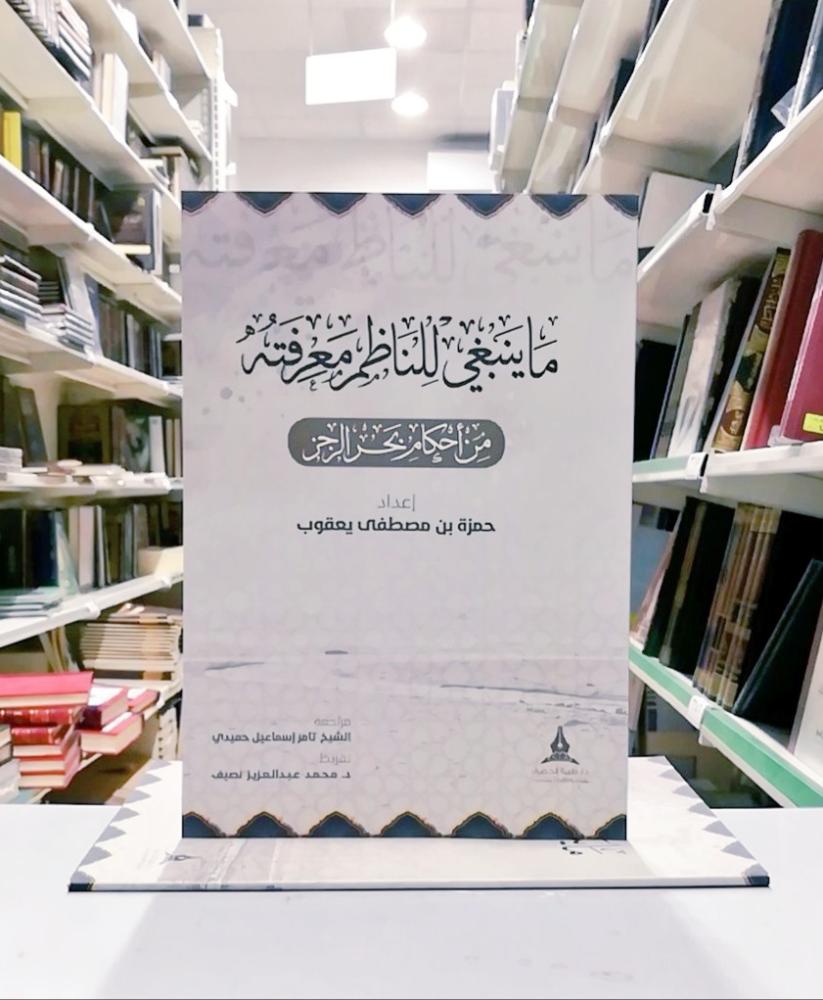 ما ينبغي للناظم معرفته
مَا يَنبَغِي لِلنَاظِمِ مَعرِفَتهُ
مِن أحكام بحر الرجز
إعداد
حمزة بن مصطفى يعقوب
مراجعة
الشيخ تامر إسماعيل حميدي
تقريظ
د. محمد عبدالعزيز نصيف